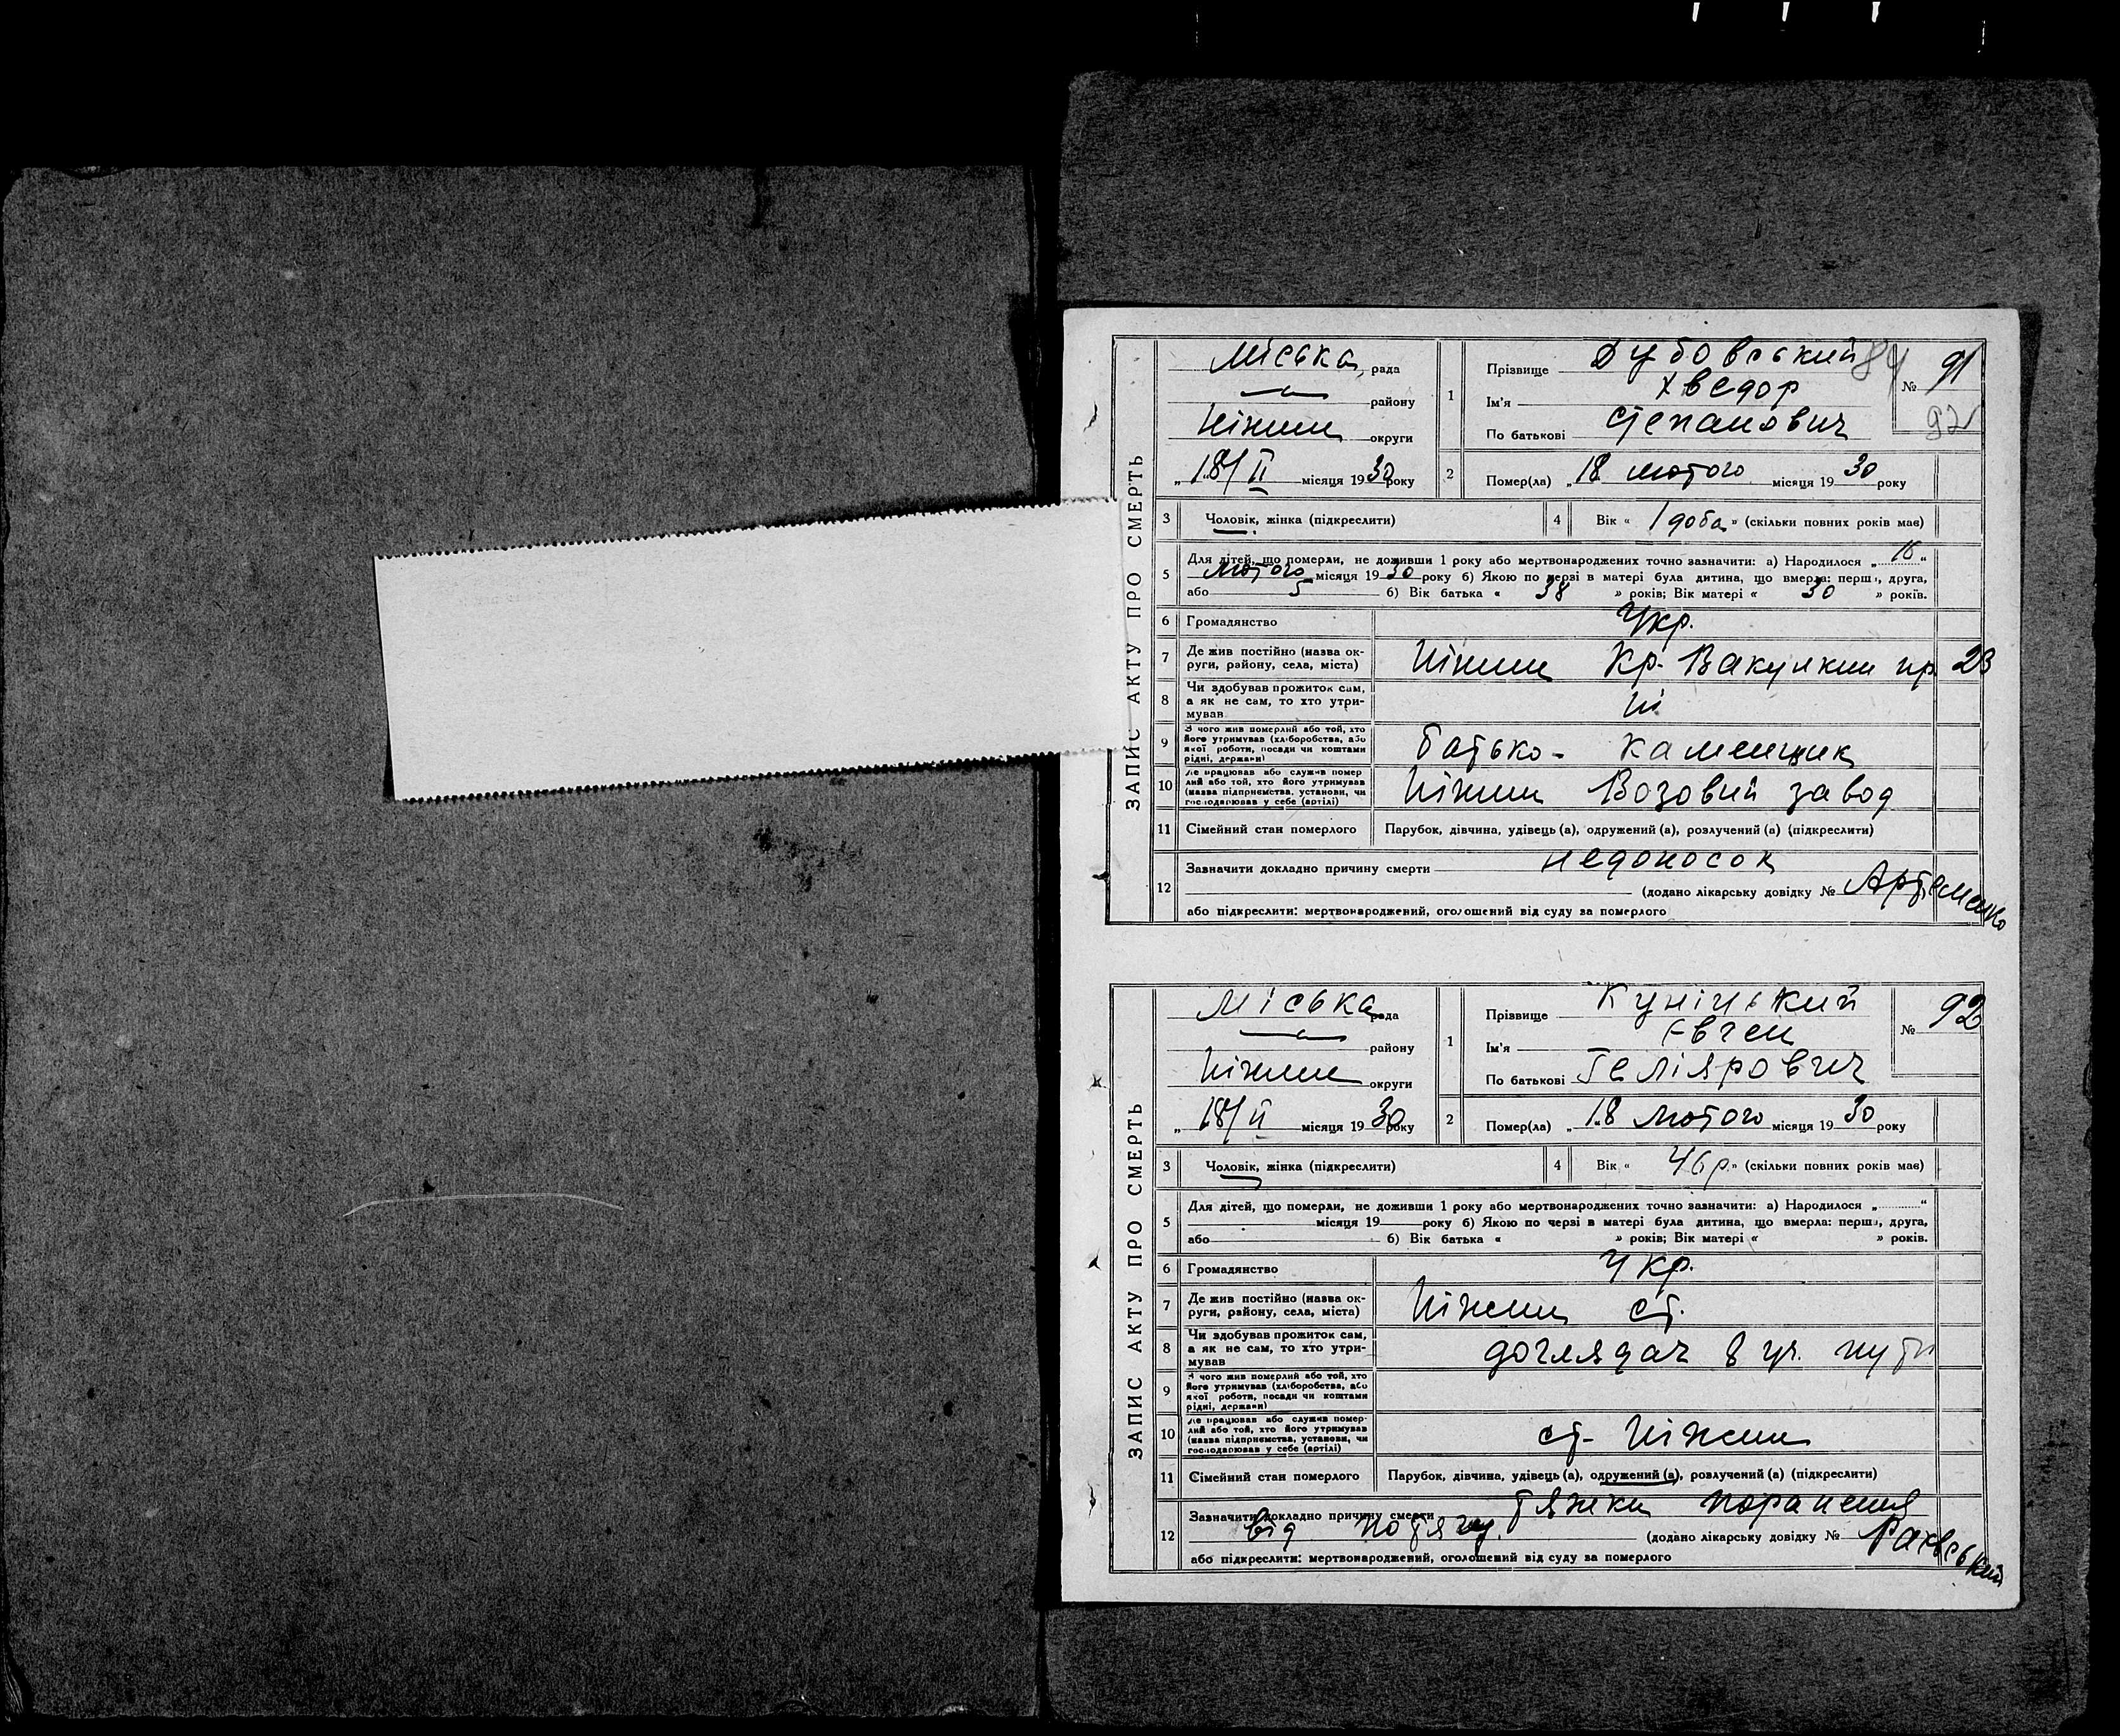 ЗАПИС АКТУ ПРО СМЕРТЬ
Міська рада
району
Ніжин округи
„18/II місяця 1930 року
1 Прізвище Дубовський 84
Ім'я Хведор
По батькові Степанович
№ 91
92
2 Помер(ла) „18 лютого місяця 1930 року
3 Чоловік, жінка (підкреслити)
4 Вік « 1 доба » (скільки повних років має)
5 Для дітей, що померли, не доживши 1 року або мертвонароджених точно зазначити: а) Народилося „16“
лютого місяця 1930 року б) Якою по черзі в матері була дитина, що вмерла: перша, друга,
або 5 б) Вік батька « 38 » років; Вік матері « 30 » років.
6 Громадянство Укр.
7 Де жив постійно (назва ок-
руги, району, села, міста) Ніжин Кр. 23
8 Чи здобував прожиток сам,
а як не сам, то хто утри-
мував Ні
9 З чого жив померлий або той, хто
його утримував (хліборобства, або
якої роботи, посади чи коштами
рідні, держави) батько - каменщик
10 Де працював або служив помер
лий або той, хто його утримував
(назва підприємства, установи, чи
господарював у себе (артілі) Ніжин Возовий завод
11 Сімейний стан померлого Парубок, дівчина, удівець (а), одружений (а), розлучений (а) (підкреслити)
12 Зазначити докладно причину смерти недоносок
(додано лікарську довідку № Артеменко
або підкреслити: мертвонароджений, оголошений від суду за померлого
ЗАПИС АКТУ ПРО СМЕРТЬ
Міська рада
району
Ніжин округи
„18/II місяця 1930 року
1 Прізвище Куніцький
Ім'я Євген
По батькові Геліярович
№ 92
2 Помер(ла) „18 лютого місяця 1930 року
3 Чоловік, жінка (підкреслити)
4 Вік « 46 р. » (скільки повних років має)
5 Для дітей, що померли, не доживши 1 року або мертвонароджених точно зазначити: а) Народилося „ “
місяця 19 року б) Якою по черзі в матері була дитина, що вмерла: перша, друга,
або б) Вік батька « » років; Вік матері « » років.
6 Громадянство Укр.
7 Де жив постійно (назва ок-
руги, району, села, міста) Ніжин ст.
8 Чи здобував прожиток сам,
а як не сам, то хто утри-
мував доглядач 8 уч. пути
9 З чого жив померлий або той, хто
його утримував (хліборобства, або
якої роботи, посади чи коштами
рідні, держави)
10 Де працював або служив помер-
лий або той, хто його утримував
(назва підприємства, установи, чи
господарював у себе (артілі) ст. Ніжин
11 Сімейний стан померлого Парубок, дівчина, удівець (а), одружений (а), розлучений (а) (підкреслити)
12 Зазначити докладно причину смерти тяжки поранення
від потягу. (додано лікарську довідку №
або підкреслити: мертвонароджений, оголошений від суду за померлого